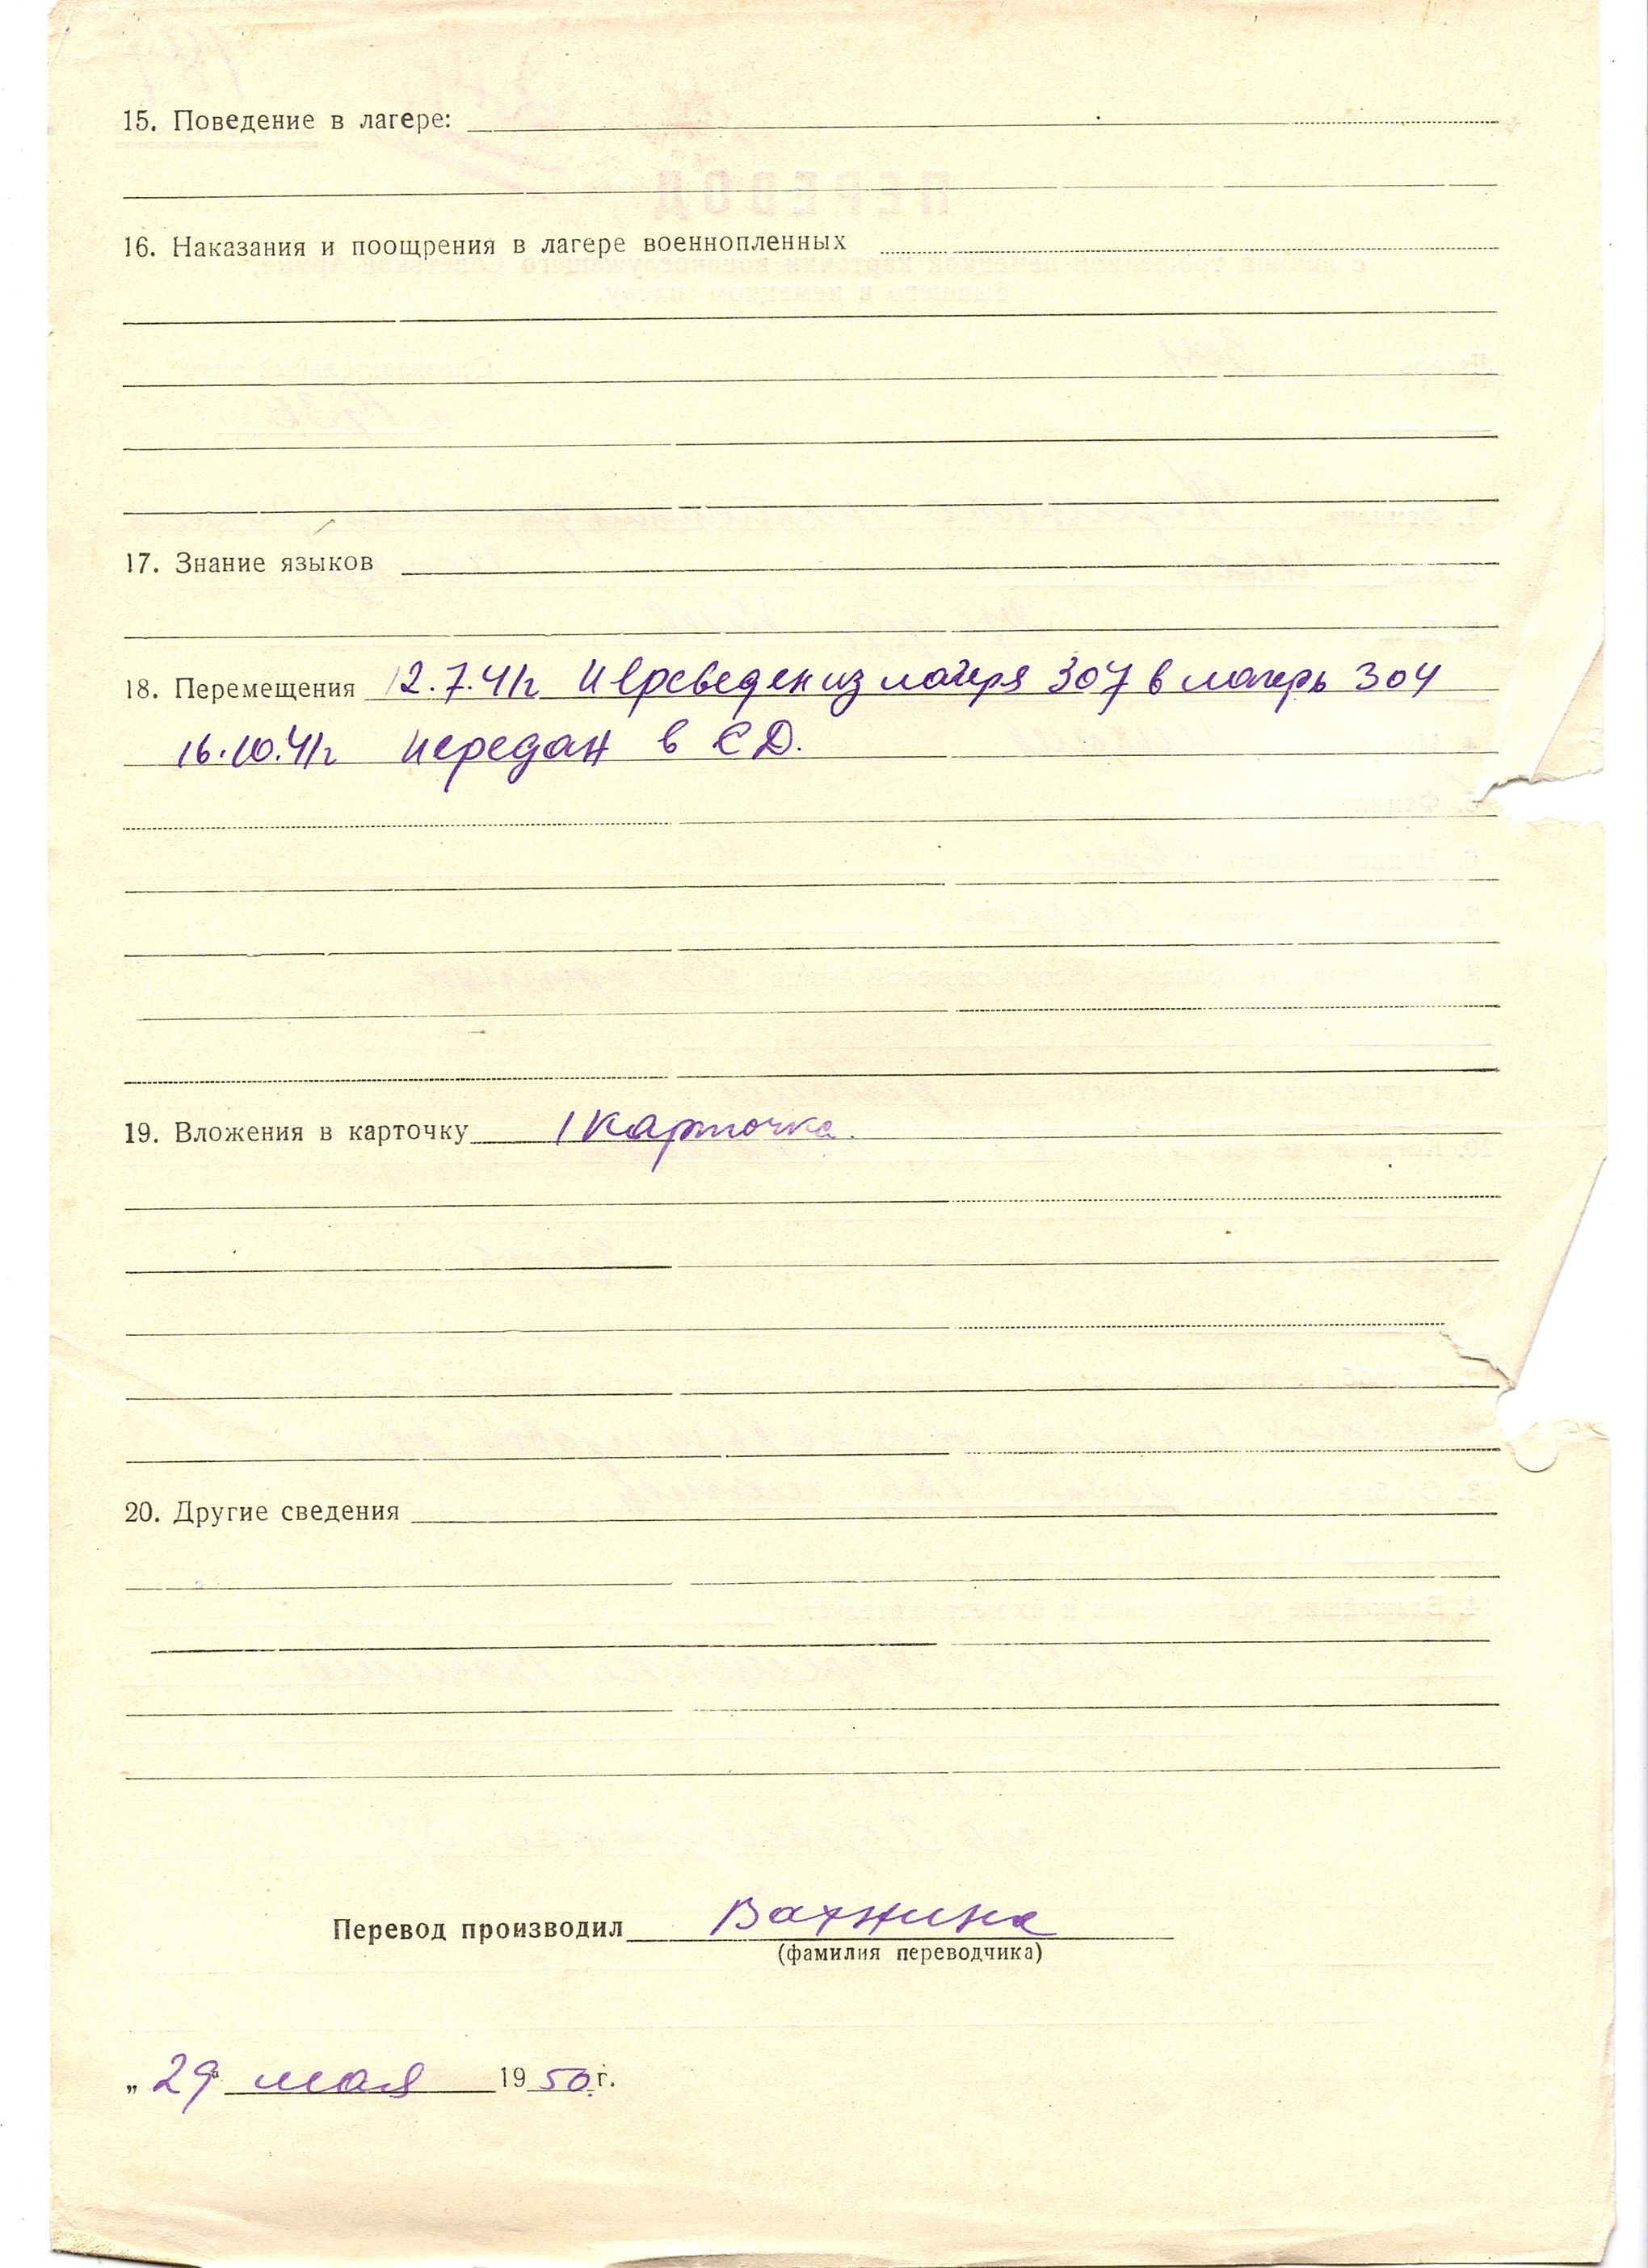 15. Поведение в лагере:
16. Наказания и поощрения в лагере военнопленных
17. Знание языков
18. Перемещения 12.7.41г Переведен из лагеря 307 в лагерь 304
16.10.41г Передан в СД.
19. Вложения в карточку 1 карточка.
20. Другие сведения
Перевод производил Вахнина
(фамилия переводчика)
„29" мая 1950 г.